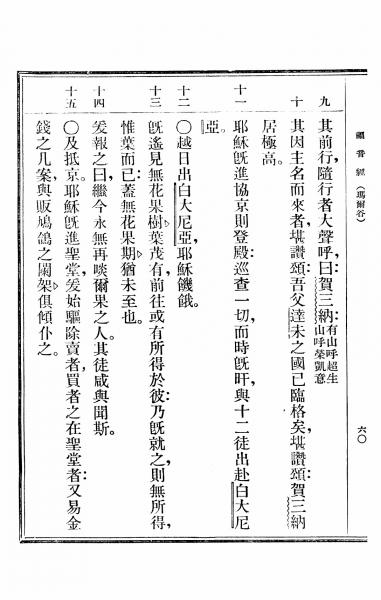 福音經（瑪爾谷）
六〇
九 其前行，隨行者大聲呼曰：賀三納：有山呼超生山呼榮凱意
十 其因主名而來者，堪讚頌：吾父達未之國已臨格矣，堪讚頌：賀三納
居極高。
十一 耶穌旣進協京，則登殿：巡查一切，而時旣旰，與十二徒出，赴白大尼
亞。
十二 〇越日出白大尼亞，耶穌饑餓。
十三 旣遙見無花果樹，葉茂，有前往或有所得於彼：乃旣就之，則無所得，
惟葉而已：葢無花果期，猶未至也。
十四 爰報之曰：繼今永無再啖爾果之人。其徒咸與聞斯。
十五 〇及抵京。耶穌旣進聖堂，爰始驅除賣者買者之在聖堂者：又易金
錢之几案，與販鳩鴿之闌架，俱傾仆之。